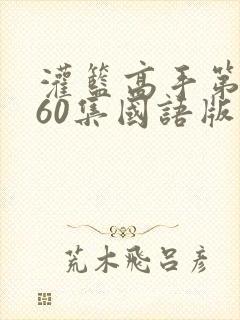 灌籃高手第
60集國語版
荒木飛呂彥